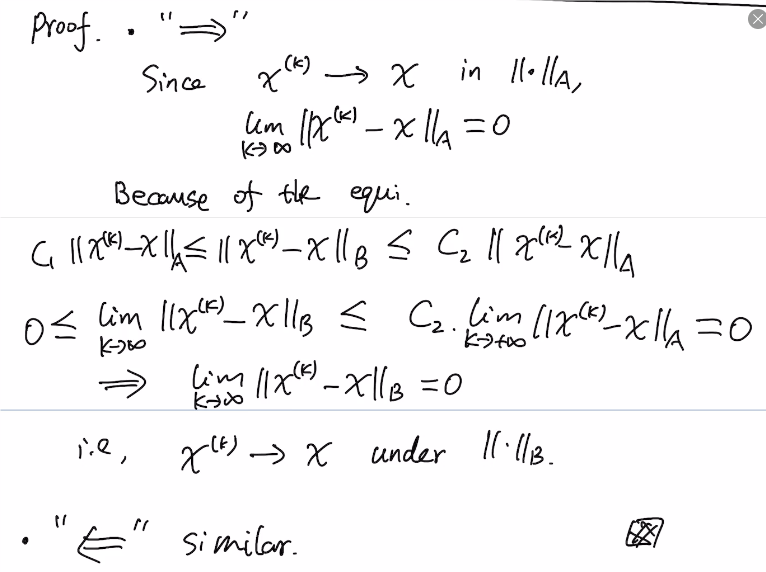 Proof. • "⟹"
Since x^(k) → x in ||·||_A,
lim_{k→∞} ||x^(k) − x||_A = 0
Because of the equi.
C₁ ||x^(k) − x||_A ≤ ||x^(k) − x||_B ≤ C₂ ||x^(k) − x||_A
0 ≤ lim_{k→∞} ||x^(k) − x||_B ≤ C₂ · lim_{k→+∞} ||x^(k) − x||_A = 0
⟹ lim_{k→∞} ||x^(k) − x||_B = 0
i.e, x^(k) → x under ||·||_B.
• "⟸" similar.